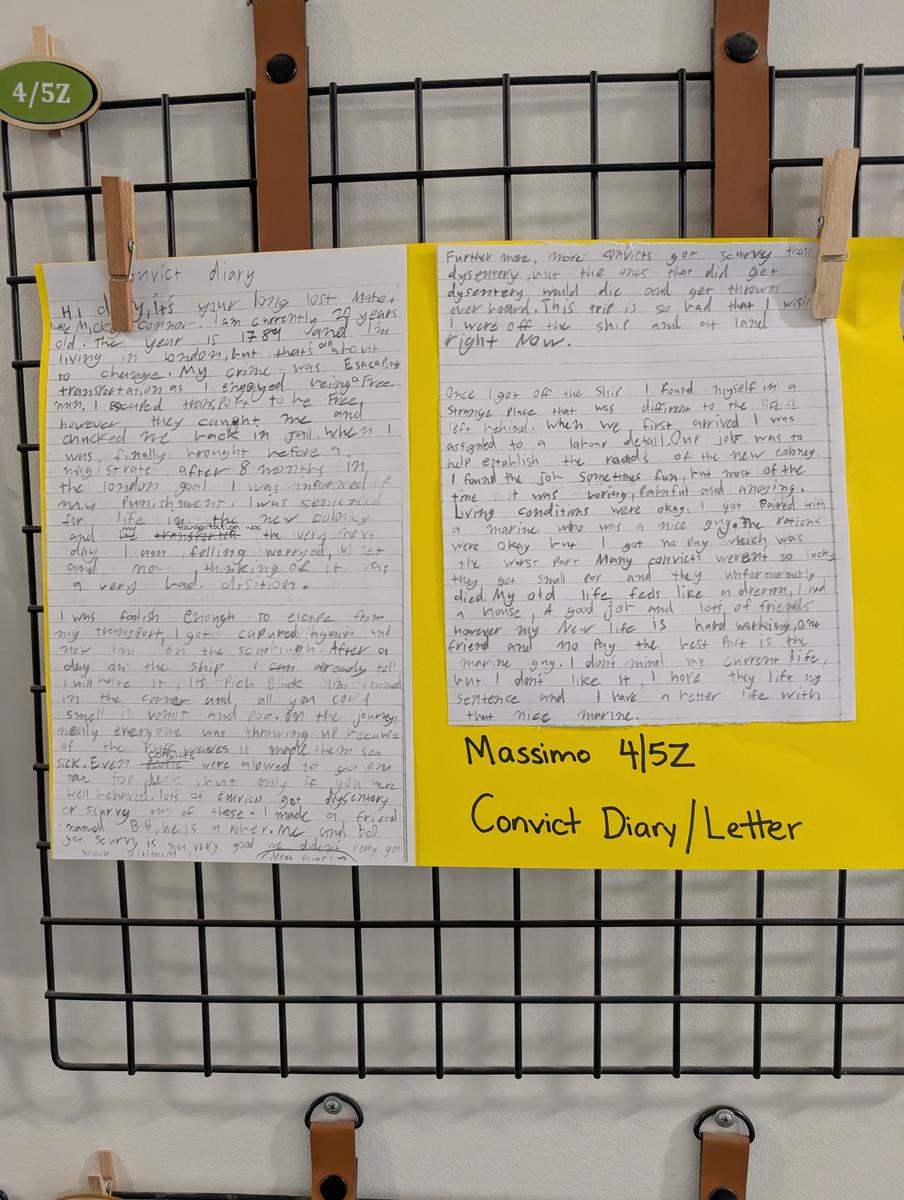 4/5Z
onvict diary
Hi diary, it's your long lost Mate
little Micke Connor. I am currently 20 years
old. The year is 1789 and I'm
living in London, but that's all about
to change. My crime was Esacaping
transportation as I engoyed being a Free
man. I Escaped transport to be Free,
however they caught me and
chucked me back in Jail. When I
was finally brought before a
magistrate after 8 months in
the london goal I was informed of
my Punishment. I was sentenced
for life in the new coloney
and my transportation was the very next
day. I am felling worryed,
and now thinking of it, as
a very bad. disition.
I was foolish enough to escape from
my transport, I got capured again and
now I'm on the scarringh. After a
day on the ship I can already tell
I will hate it, It's Pich Black
in the corner and, all you could
smell is vomit and poo. On the journey,
nealy everyone was throwing up because
of the ruff waves it made them sea
sick. Even convicts were alowed to go on
top deck, but only if you were
well behaved. lots of convics got dysentery
or scurvy one of those. I made a friend
named Bob, he is a rober. Me and bob
got scurvy is not very good we didn't realy get
much
(Next Page) →
Further more, more convicts got scurvy then
dysentery, but the ones that did get
dysentery would die and get thrown
over board. This trip is so bad that I wish
I were off the ship and at land
right now.
Once I got off the ship I found myself in a
strange place that was different to the life I
left behind. When we first arrived I was
assigned to a labour detail. Our job was to
help establish the roads of the new coloney.
I found the job sometimes fun, but most of the
time it was boring, Painful and anoying.
Living conditions were okay, I got Paired with
a marine who was a nice guy. The rations
were okay but I got no pay which was
the worst part. Many convicts werent so lucky
they got small por and they unfortunently
died. My old life feels like a dream, I had
a house, A good job and lots of friends
however my New life is hard working, one
friend and no Pay the best Part is the
marine guy. I don't mind my current life,
but I don't like it, I hope they lift my
sentence and I have a better life with
that nice marine.
Massimo 4/5Z
Convict Diary/Letter